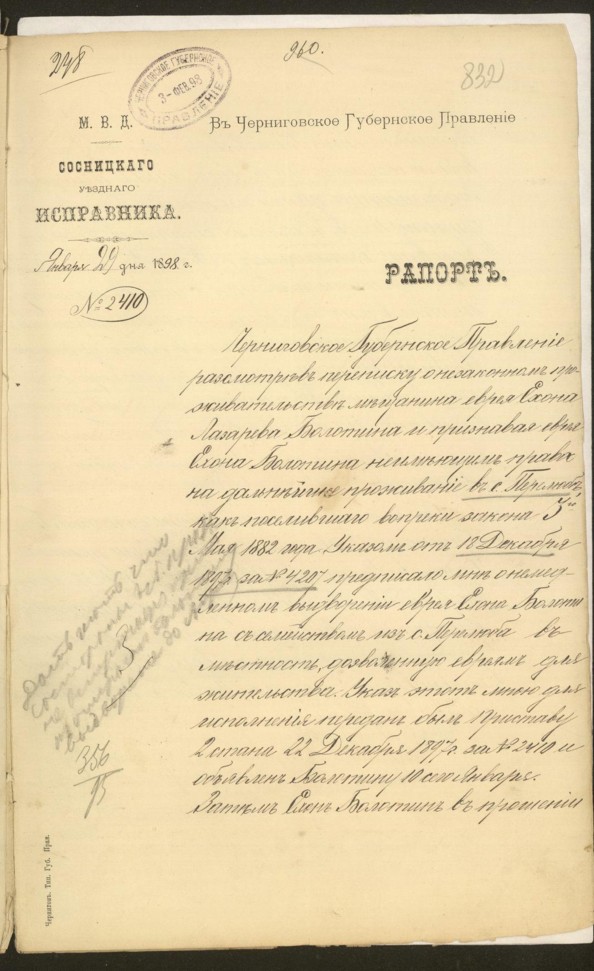 248
960.
832
ЧЕРНИГОВСКОЕ ГУБЕРНСКОЕ
3-ФЕВ.98
ПРАВЛЕНІЕ
М. В. Д.
Въ Черниговское Губернское Правленіе
СОСНИЦКАГО
УѢЗДНАГО
ИСПРАВНИКА.
Января 29 дня 1898 г.
№ 2410
РАПОРТЪ.
Черниговское Губернское Правленіе
разсмотрѣвъ переписку о незаконномъ про-
живательствѣ мѣщанина еврея Ехона
Лазарева Болотина и признавая еврея
Болотина неимѣющимъ права
на дальнѣйшее проживаніе въ с.
какъ поселившаго вопреки закона 3го
Мая 1882 года Указомъ отъ 18 Декабря
1897г за № 4207 предписало мнѣ о немед-
ленномъ выдвореніи еврея Болоти
на съ семѣйствомъ изъ с. въ
мѣстность, дозволенную евреямъ для
жительства. Указъ этотъ мною для
исполненія переданъ былъ Приставу
2 стана 22 Декабря 1897г за № 2410 и
объявленъ Болотину 10 сего Января.
Затѣмъ Ехонъ Болотинъ въ прошеніи
356
Черниговъ. Тип. Губ. Прав.